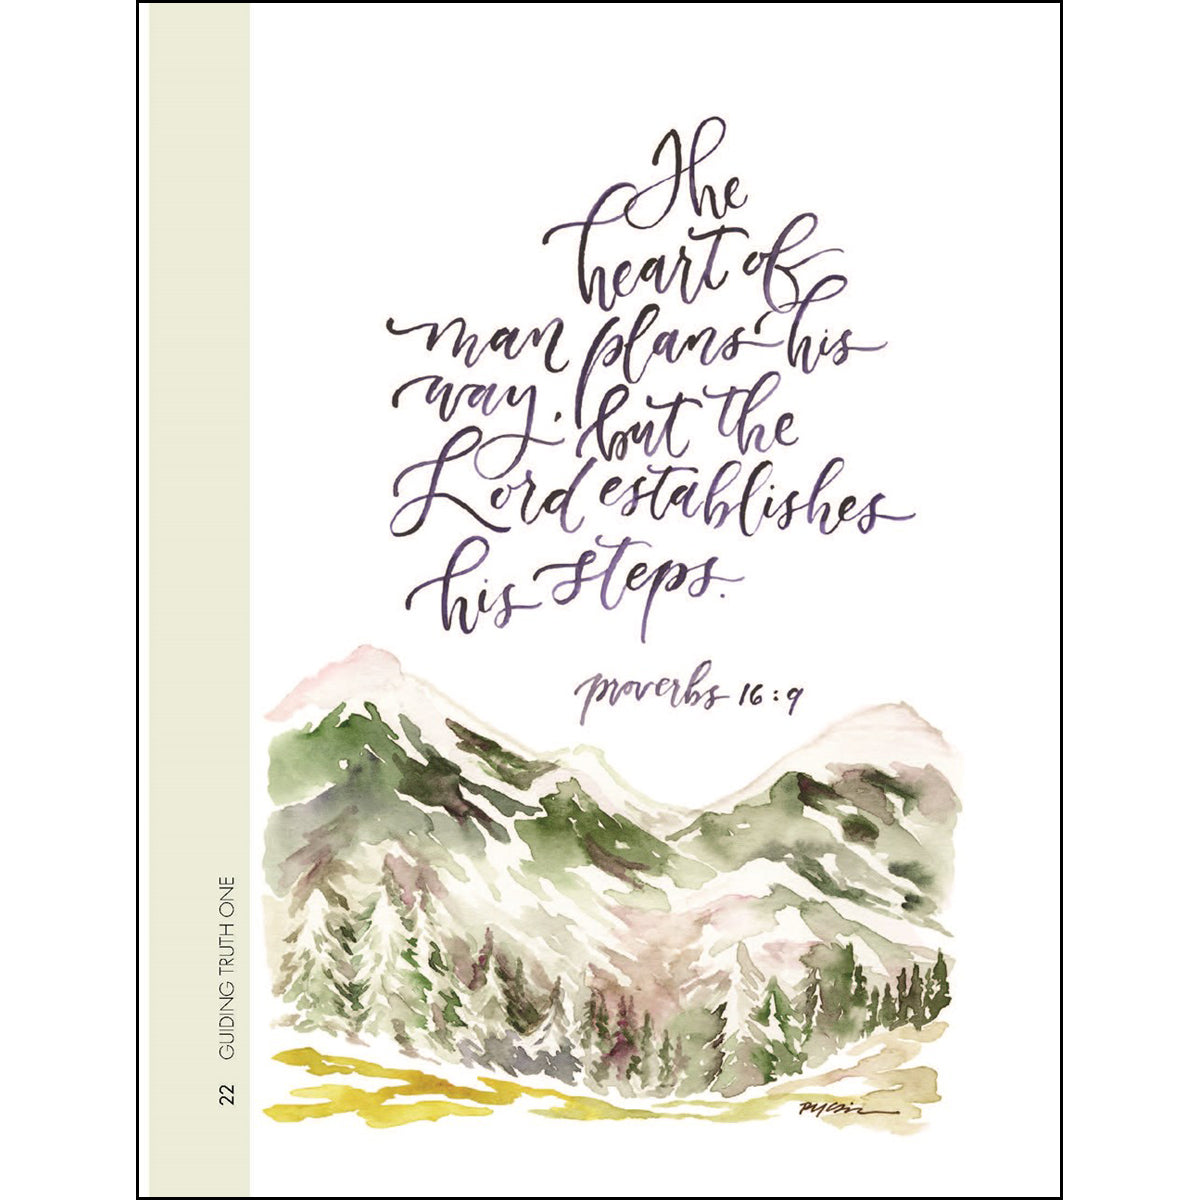 The
heart of
man plans his
way, but the
Lord establishes
his steps.
proverbs 16:9
22 GUIDING TRUTH ONE